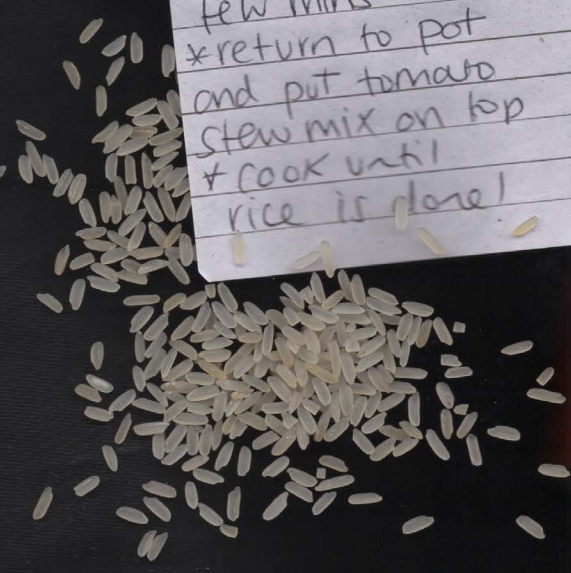 few mins
*return to pot
and put tomato
stew mix on top
+ cook until
rice is done!